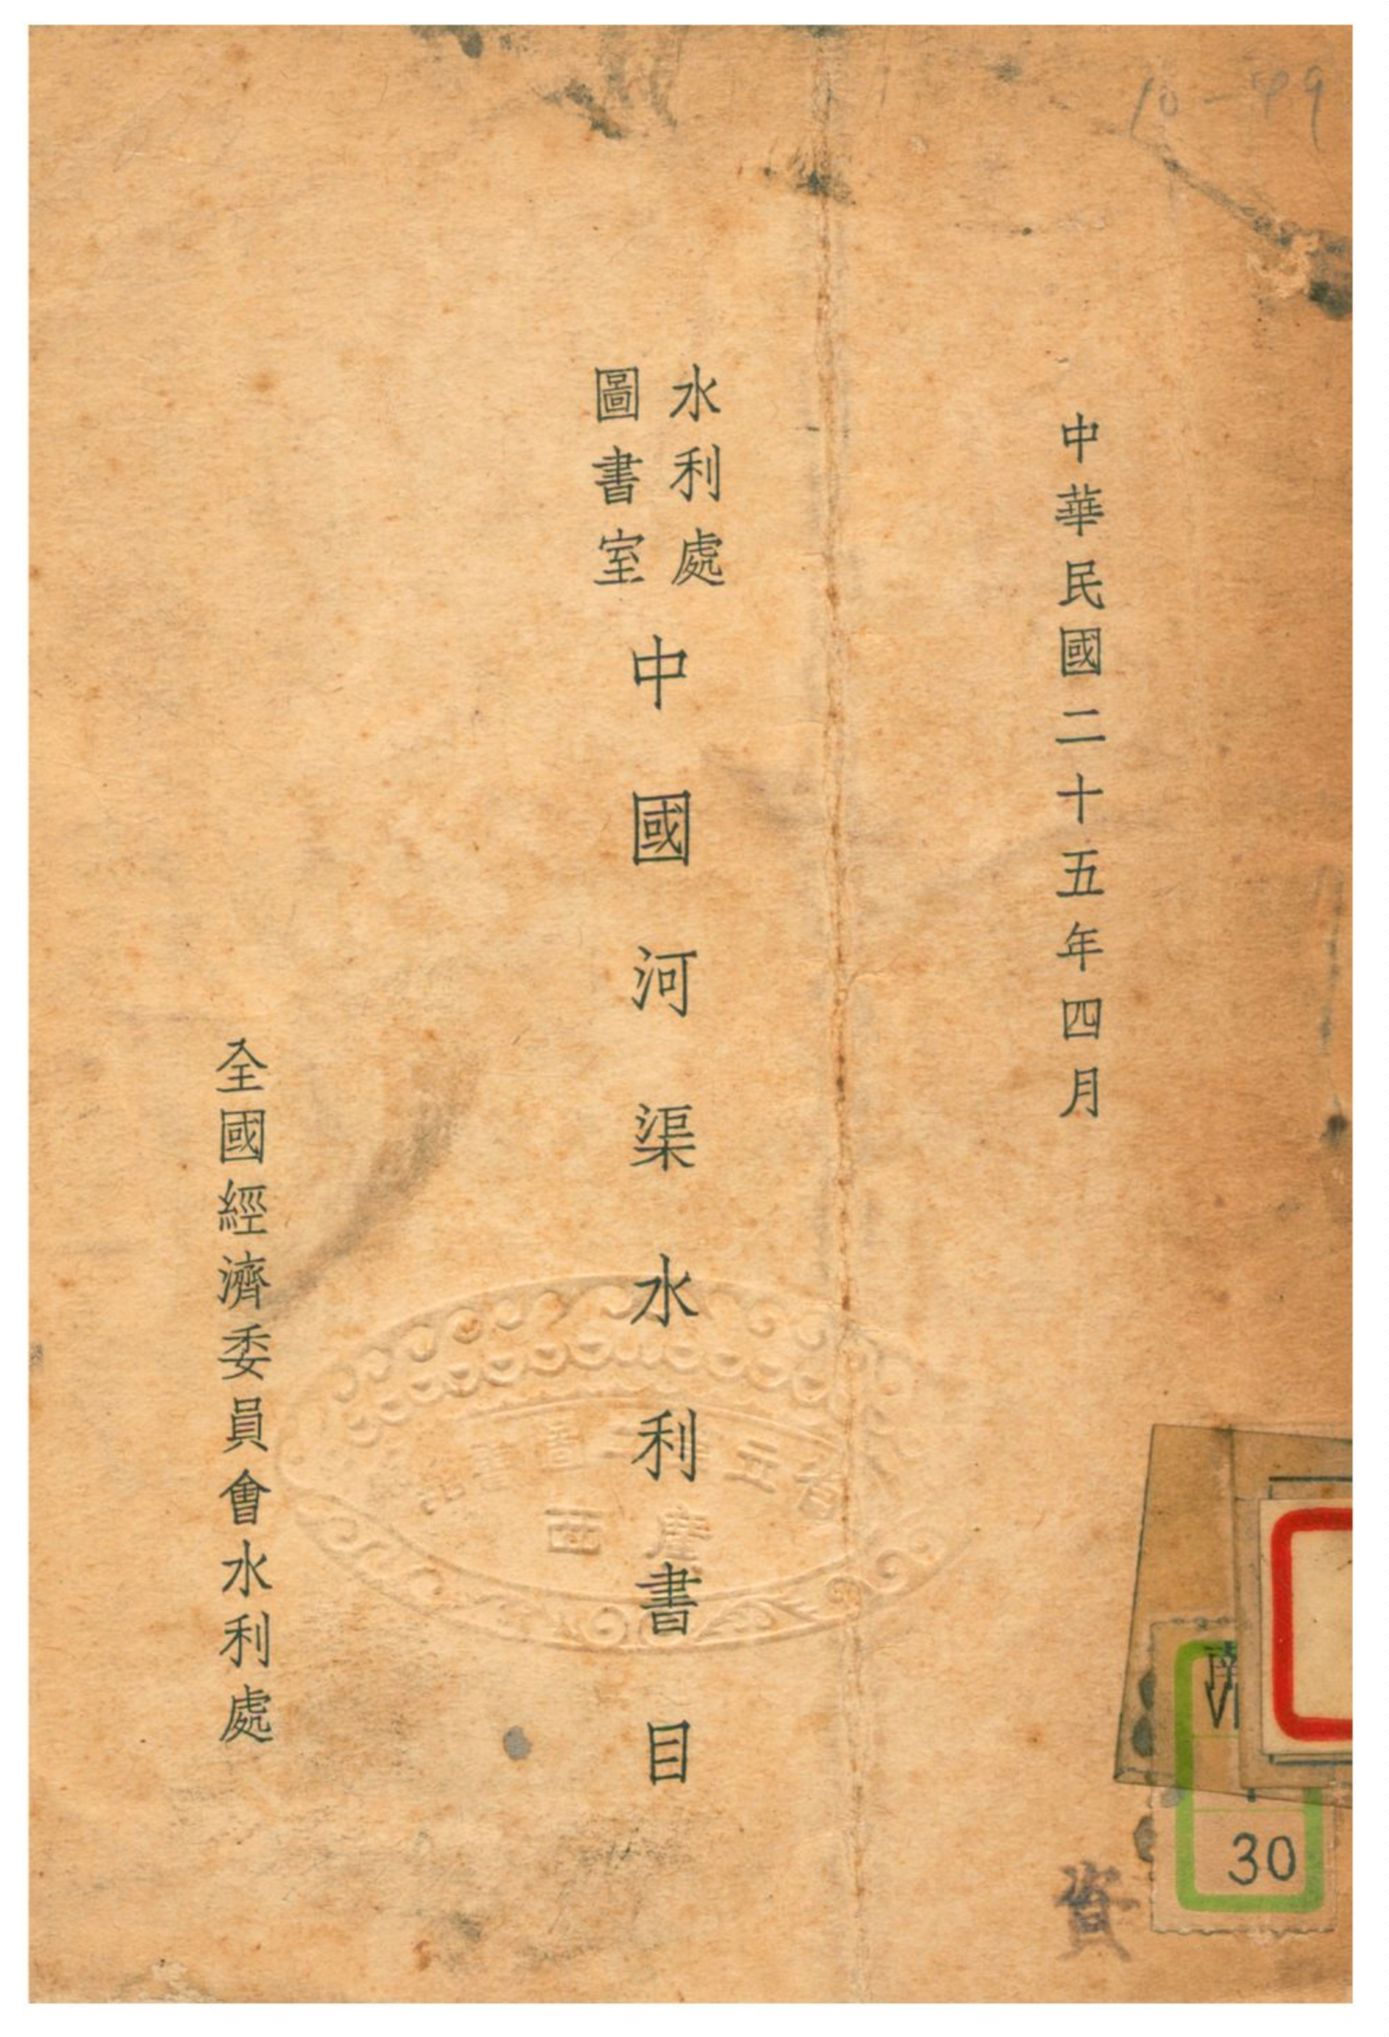 中華民國二十五年四月
水利處
圖書室
中國河渠水利書目
全國經濟委員會水利處
廣西
省立第二圖書館
資
30